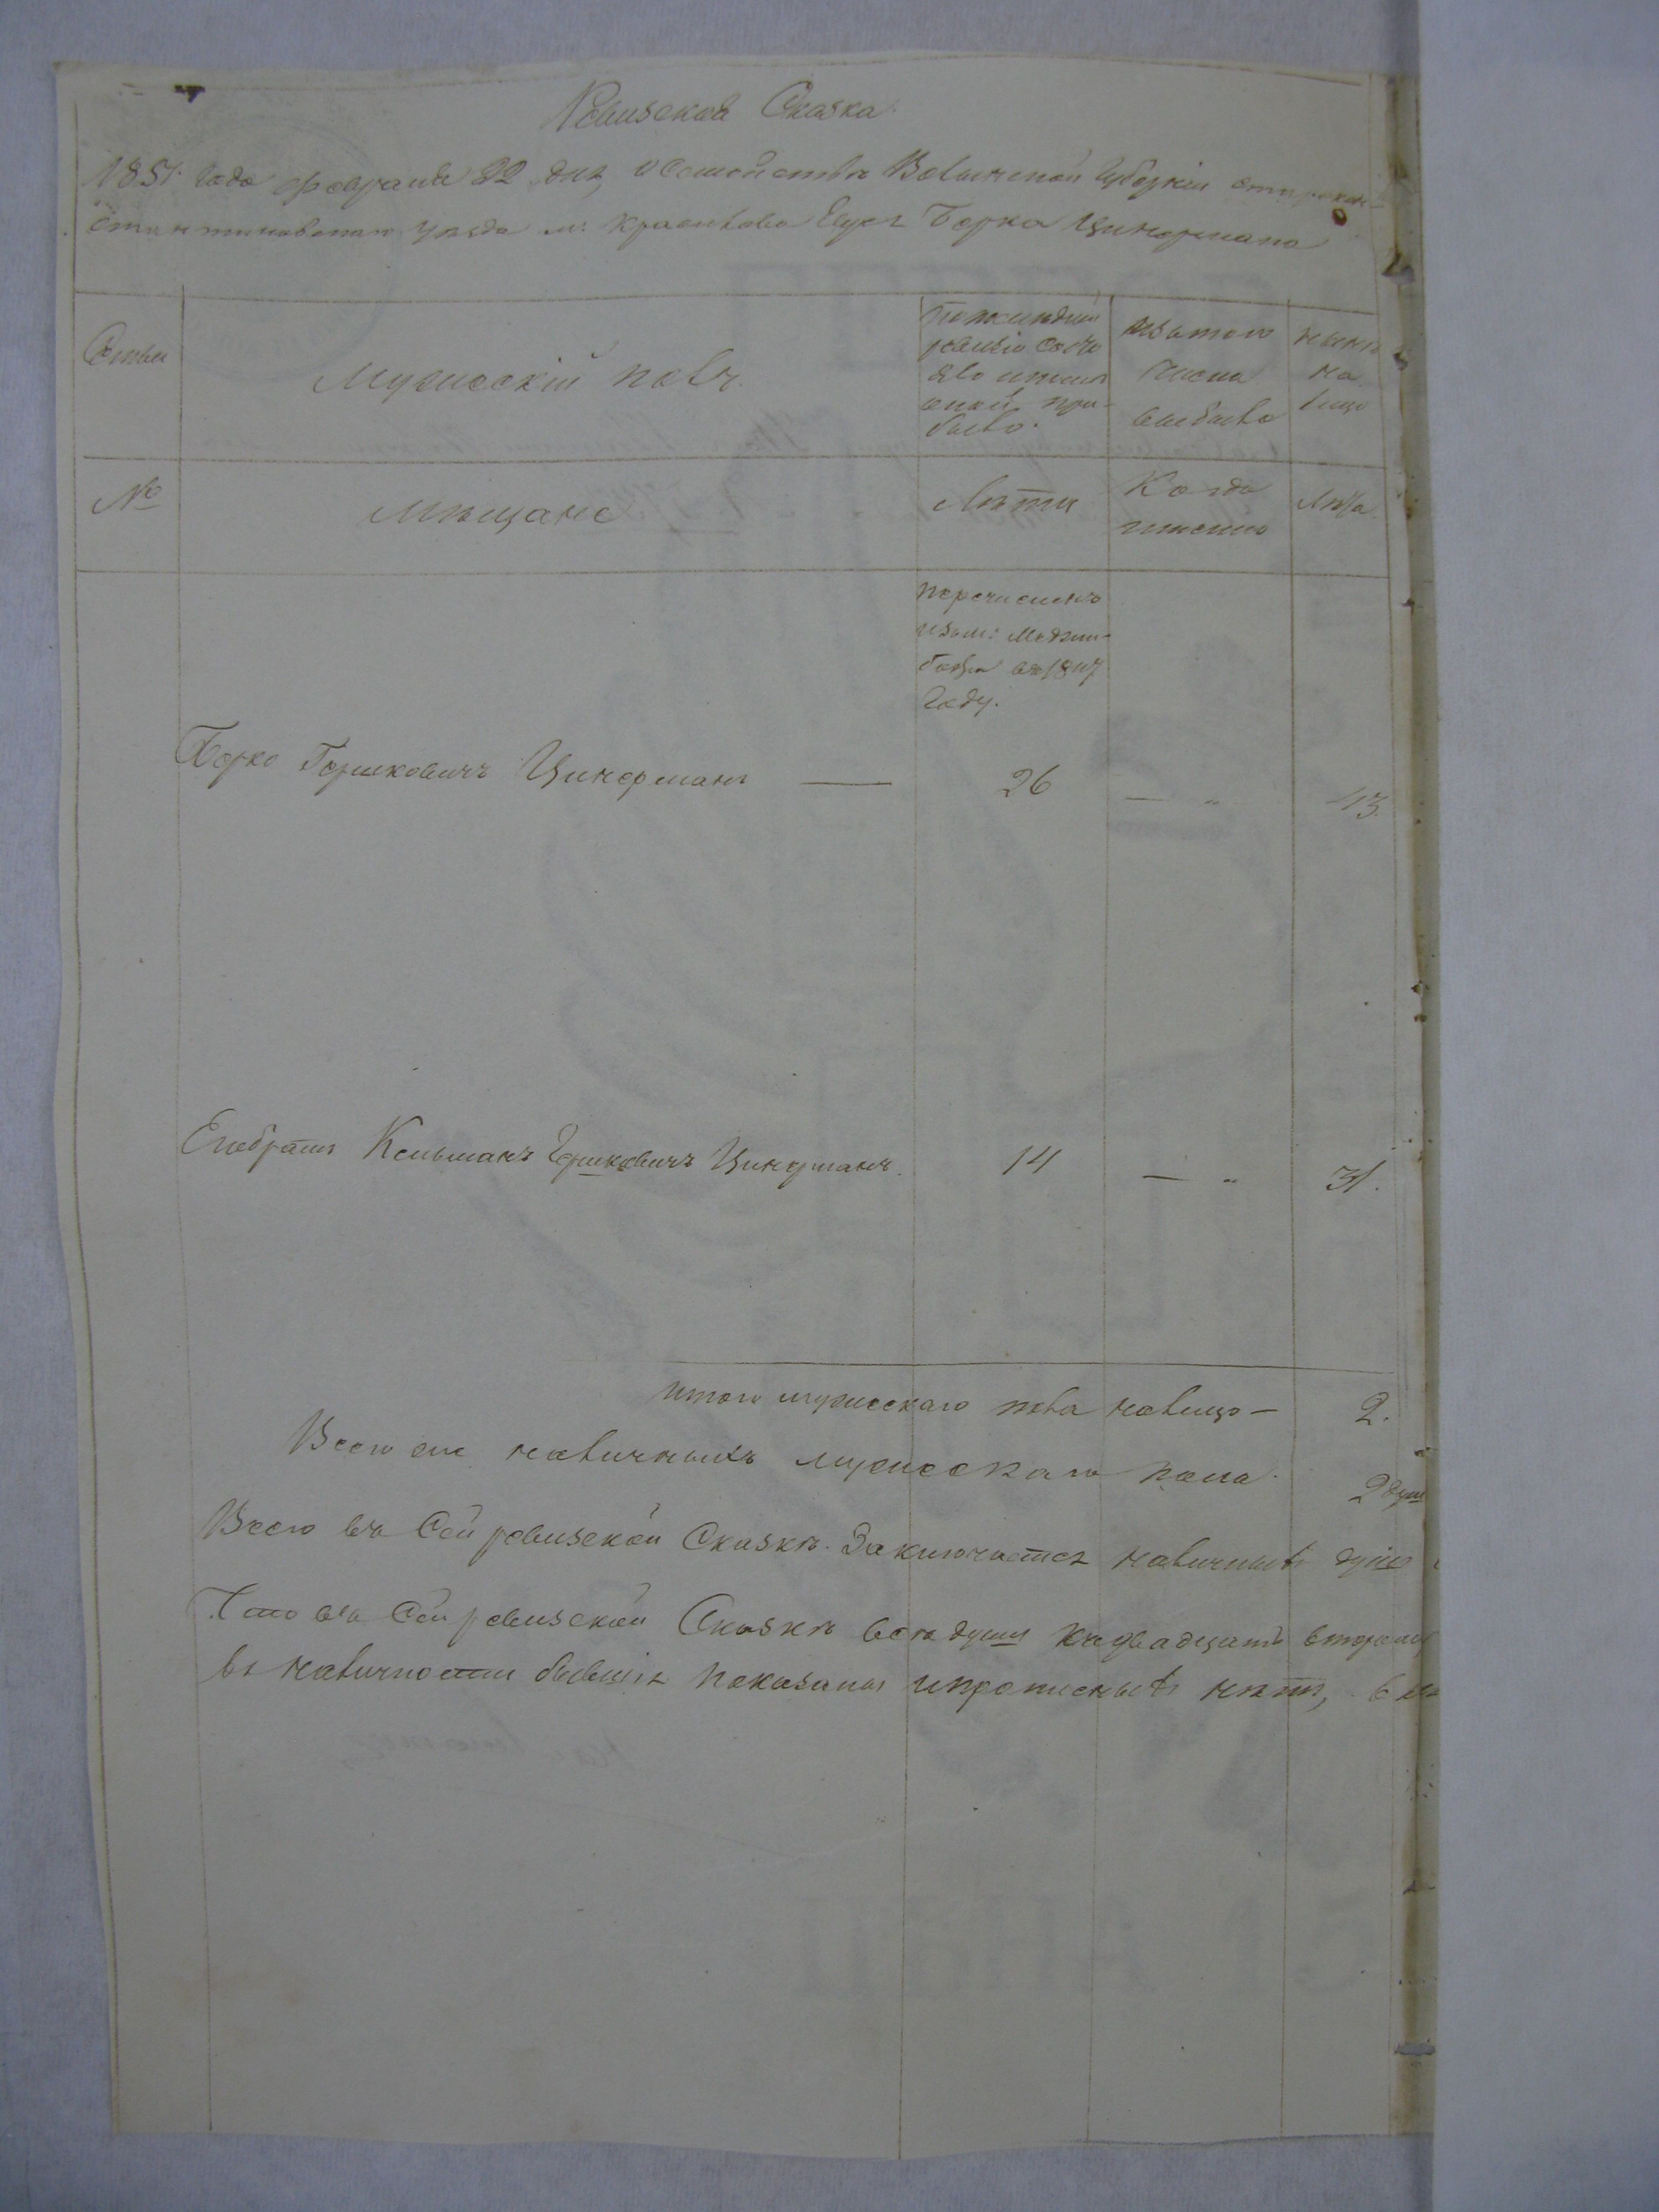 Ревизская Сказка.
1851 Года февраля 22 дня, О Семействѣ Волынской Губерніи Старокон-
стантиновскаго уезда м: Красилова Еврея Борка Цинермана
Семьи
Мужескій полъ.
По последней
ревизіи состо
яло и после
оной при-
было.
Изътого
числа
выбыло
нынѣ
на
лицо
№
Мѣщане
Лѣта
Когда
именно
Лѣта
перечисленъ
изъ м: Меджи-
божа въ 1847
Году.
Борко Гершковичъ Цинерманъ —
26
— "
43.
Егобратъ Кельманъ Гершковичъ Цинерманъ.
14
— "
31.
итого мужескаго пола налицо —
2.
Всего же наличныхъ мужескаго пола.
2 душ
Всего въ Сей ревизской Сказкѣ Заключается наличныхъ душъ
Что въ Сей ревизской Сказкѣ все души
въ наличности бывшія показаны ипрописныхъ нѣтъ,